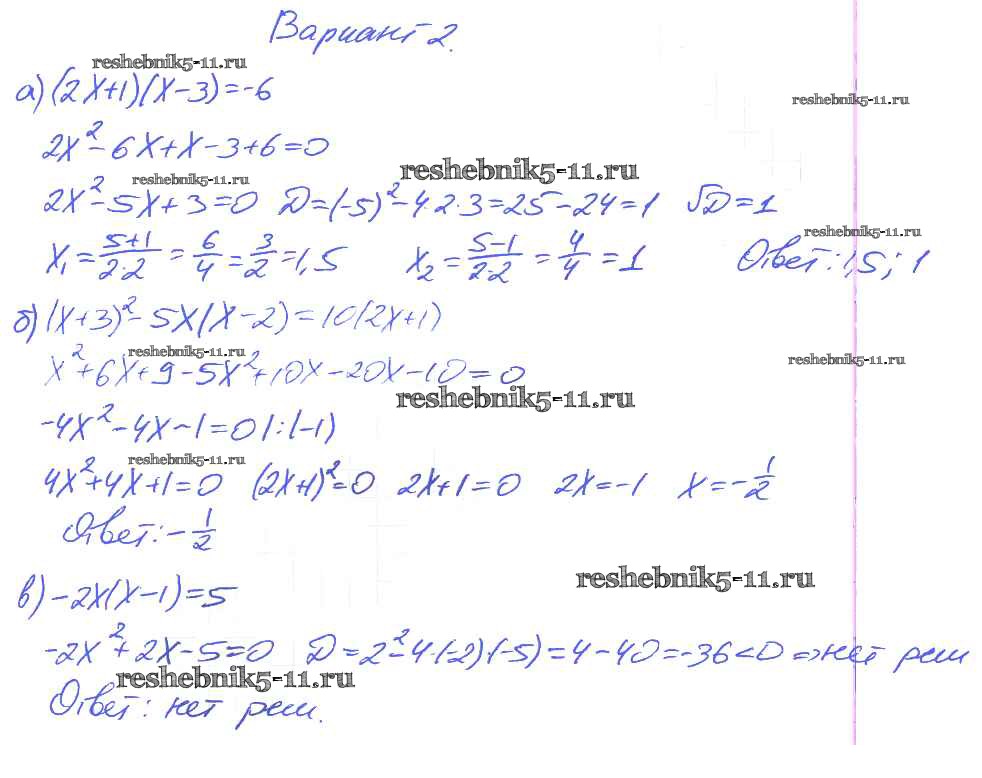 Вариант 2.
reshebnik5-11.ru
а) (2x+1)(x-3)=-6
reshebnik5-11.ru
2x²-6x+x-3+6=0
reshebnik5-11.ru
reshebnik5-11.ru
2x²-5x+3=0 D=(-5)²-4·2·3=25-24=1 √D=1
reshebnik5-11.ru
x₁=5+1/2·2=6/4=3/2=1,5 x₂=5-1/2·2=4/4=1 Ответ: 1,5; 1
б) (x+3)²-5x(x-2)=10(2x+1)
reshebnik5-11.ru
reshebnik5-11.ru
x²+6x+9-5x²+10x-20x-10=0
reshebnik5-11.ru
-4x²-4x-1=0 |:(-1)
reshebnik5-11.ru
4x²+4x+1=0 (2x+1)²=0 2x+1=0 2x=-1 x=-1/2
Ответ: -1/2
reshebnik5-11.ru
в) -2x(x-1)=5
-2x²+2x-5=0 D=2²-4·(-2)·(-5)=4-40=-36<0 ⇒ нет реш
reshebnik5-11.ru
Ответ: нет реш.